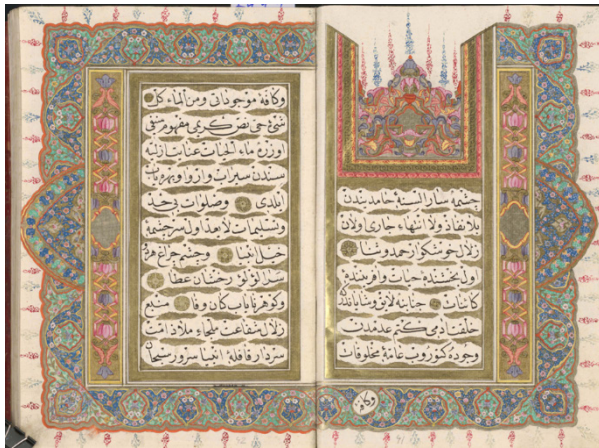 چشمه سار السنهٔ حامد بندن
بلانفاد ولا انتهاء جاری اولان
زلال خوشکوار حمد وثنا
ول بخشندهٔ حیات وافرینندهٔ
کائنات جنابنه لایق وشایاندرکه
خلقت ادمی کتم عدمدن
وجوده کتوروب عامهٔ مخلوقات
وکافه
وکافهٔ موجوداتی ومن الماء کل
شیء حی نص کریمی مفهوم منیفی
اوزره ماء الحیات عنایت ازلیه
سندن سیراب وبهره یاب
ایلدی وصلوات بی حد
وتسلیمات لا یعد اول سرچشمه
خیل انبیا وچشم چراغ
لؤلؤ رخشان عطا
وکوهر نایاب کان وفا منبع
زلال شفاعت ملجاء وملاذ امت
سردار قافلهٔ انبیا سرور